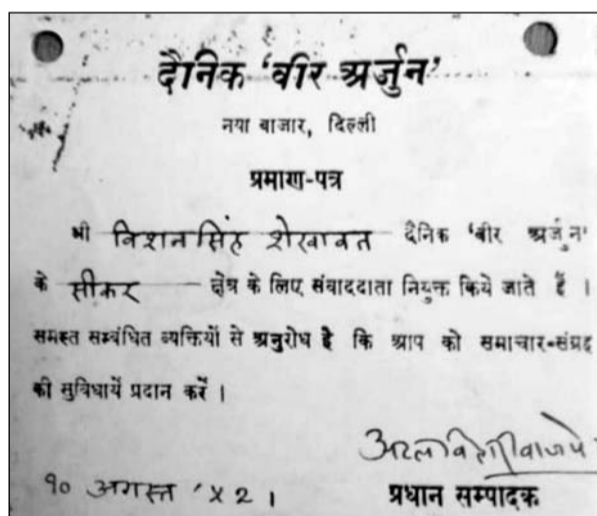 दैनिक 'वीर अर्जुन'
नया बाजार, दिल्ली
प्रमाण-पत्र
श्री बिशनसिंह शेखावत दैनिक 'वीर अर्जुन'
के सीकर क्षेत्र के लिए संवाददाता नियुक्त किये जाते हैं ।
समस्त सम्बंधित व्यक्तियों से अनुरोध है कि आप को समाचार-संग्रह
की सुविधायें प्रदान करें ।
अटल बिहारी वाजपे
१० अगस्त '५२ । प्रधान सम्पादक